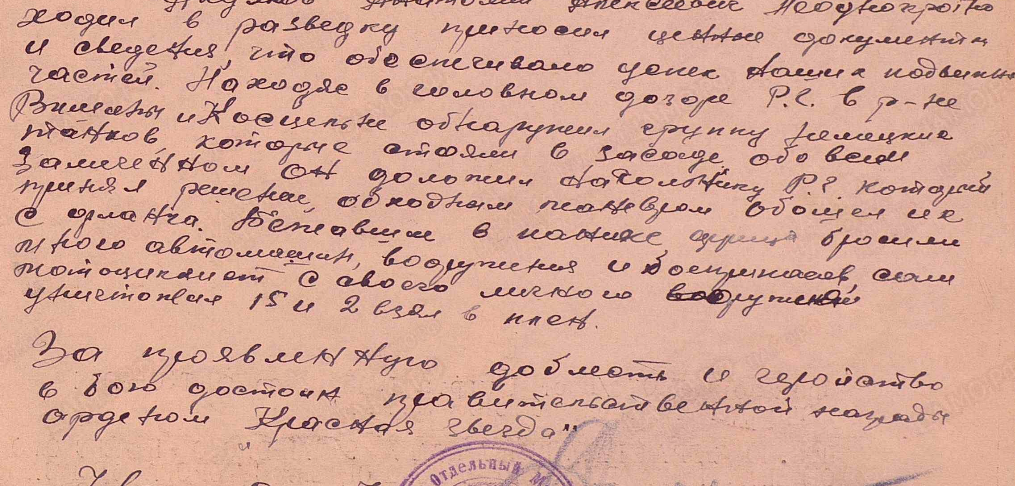 Анатолий Алексеевич Неоднократно
ходил в разведку приносил ценные документы
и сведения, что обеспечивало успех наших подвижных
частей. Находясь в головном дозоре Р.Г. в р-не
и обнаружил группу немецких
танков, которые стояли в засаде, обо всем
замеченном он доложил начальнику Р.Г. который
принял решение, обходным маневром обошел их
с фланга. Бежавшие в панике фрицы бросили
много автомашин, вооружения и боеприпасов, сам
мотоциклист с своего личного вооружений
уничтожил 15 и 2 взял в плен.
За проявленную доблесть и геройство
в бою достоин правительственной награды
орденом „Красная звезда"
Отдельный М